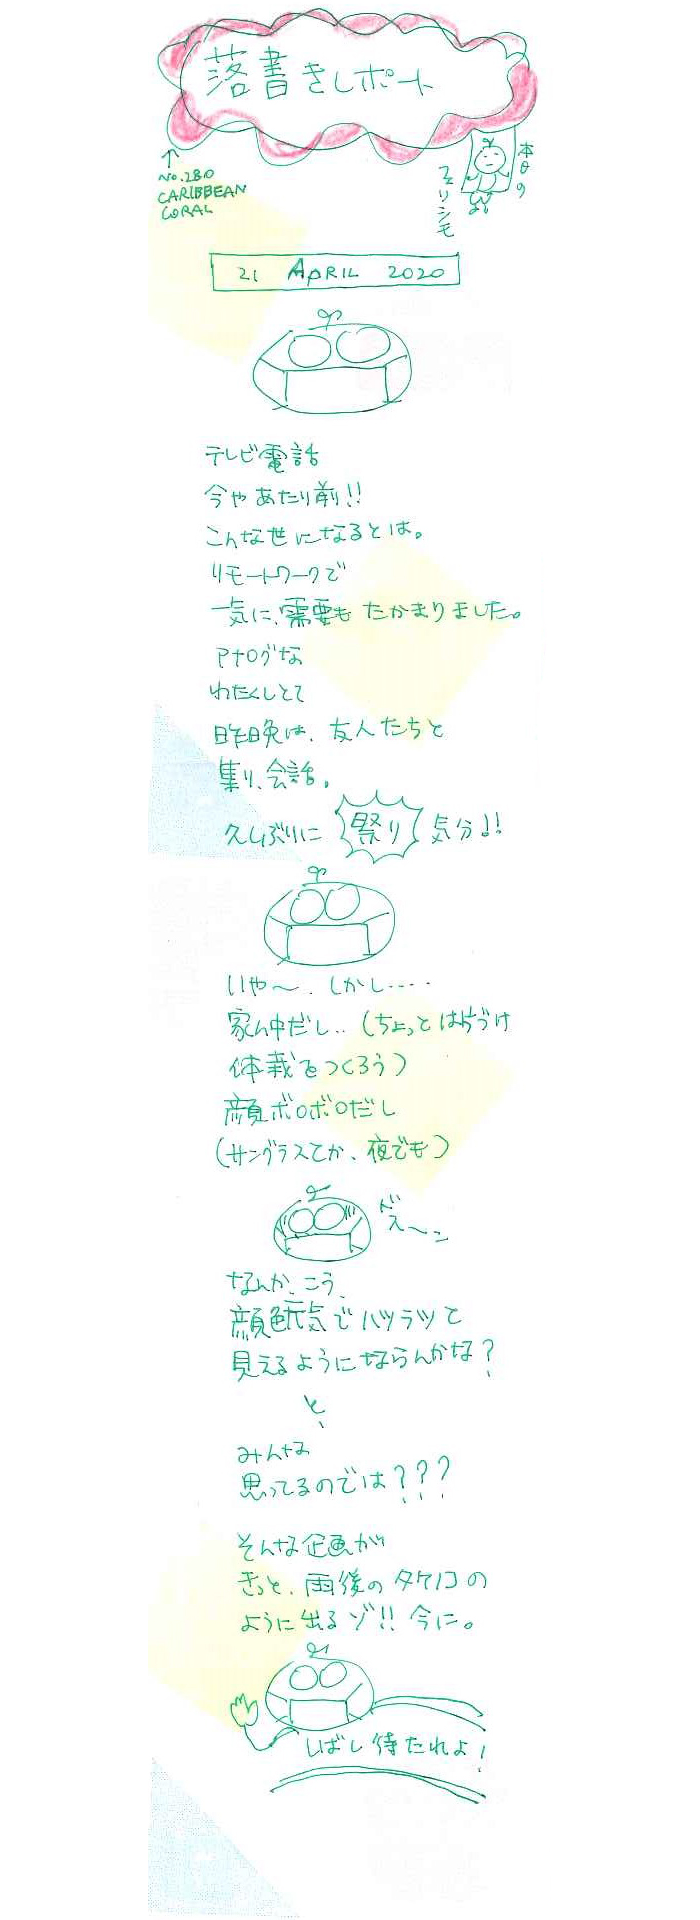 落書きレポート
本日の
フェリシモ
↑
No.280
CARIBBEAN
CORAL
21 APRIL 2020
テレビ電話
今やあたり前!!
こんな世になるとは。
リモートワークで
一気に、需要も たかまりました。
アナログな
わたくしとて
昨日晩は、友人たちと
集り、会話。
久しぶりに 祭り 気分!!
いや〜、しかし・・・・
家ん中だし・・(ちょっとは片づけ
体裁をつくろう)
顔ボロボロだし
(サングラスてか、夜でも)
ドヌ〜ン
なんか、こう、
顔色元気でハツラツと
見えるようにならんかな?
と、
みんな
思ってるのでは???
そんな企画が
きっと、雨後のタケノコの
ように出るゾ!! 今に。
しばし待たれよ!